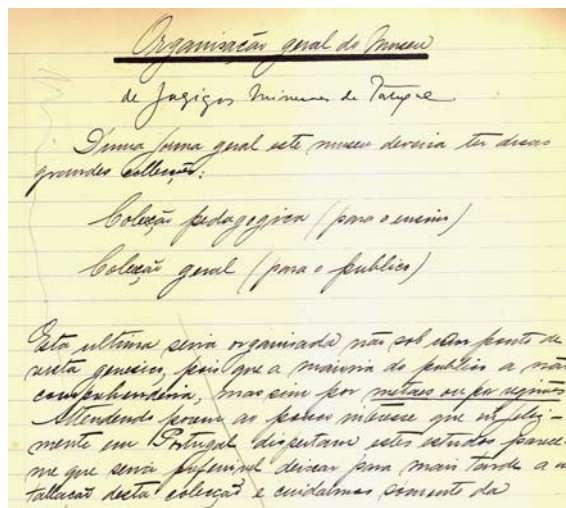 Organisação geral do Museu
de Jazigos Mineraes de Portugal
D'uma forma geral este museu deveria ter duas
grandes collecções:
Coleção pedagogica (para o ensino)
Coleção geral (para o publico)
Esta ultima seria organisada não sob um ponto de
vista genesico, pois que a maioria do publico a não
comprehenderia, mas sim por metaes ou por regiões
Attendendo porem ao pouco interesse que infeliz-
mente em Portugal dispertam estes estudos parece-
me que seria preferivel deixar para mais tarde a
tallação desta colecção e cuidarmos somente da